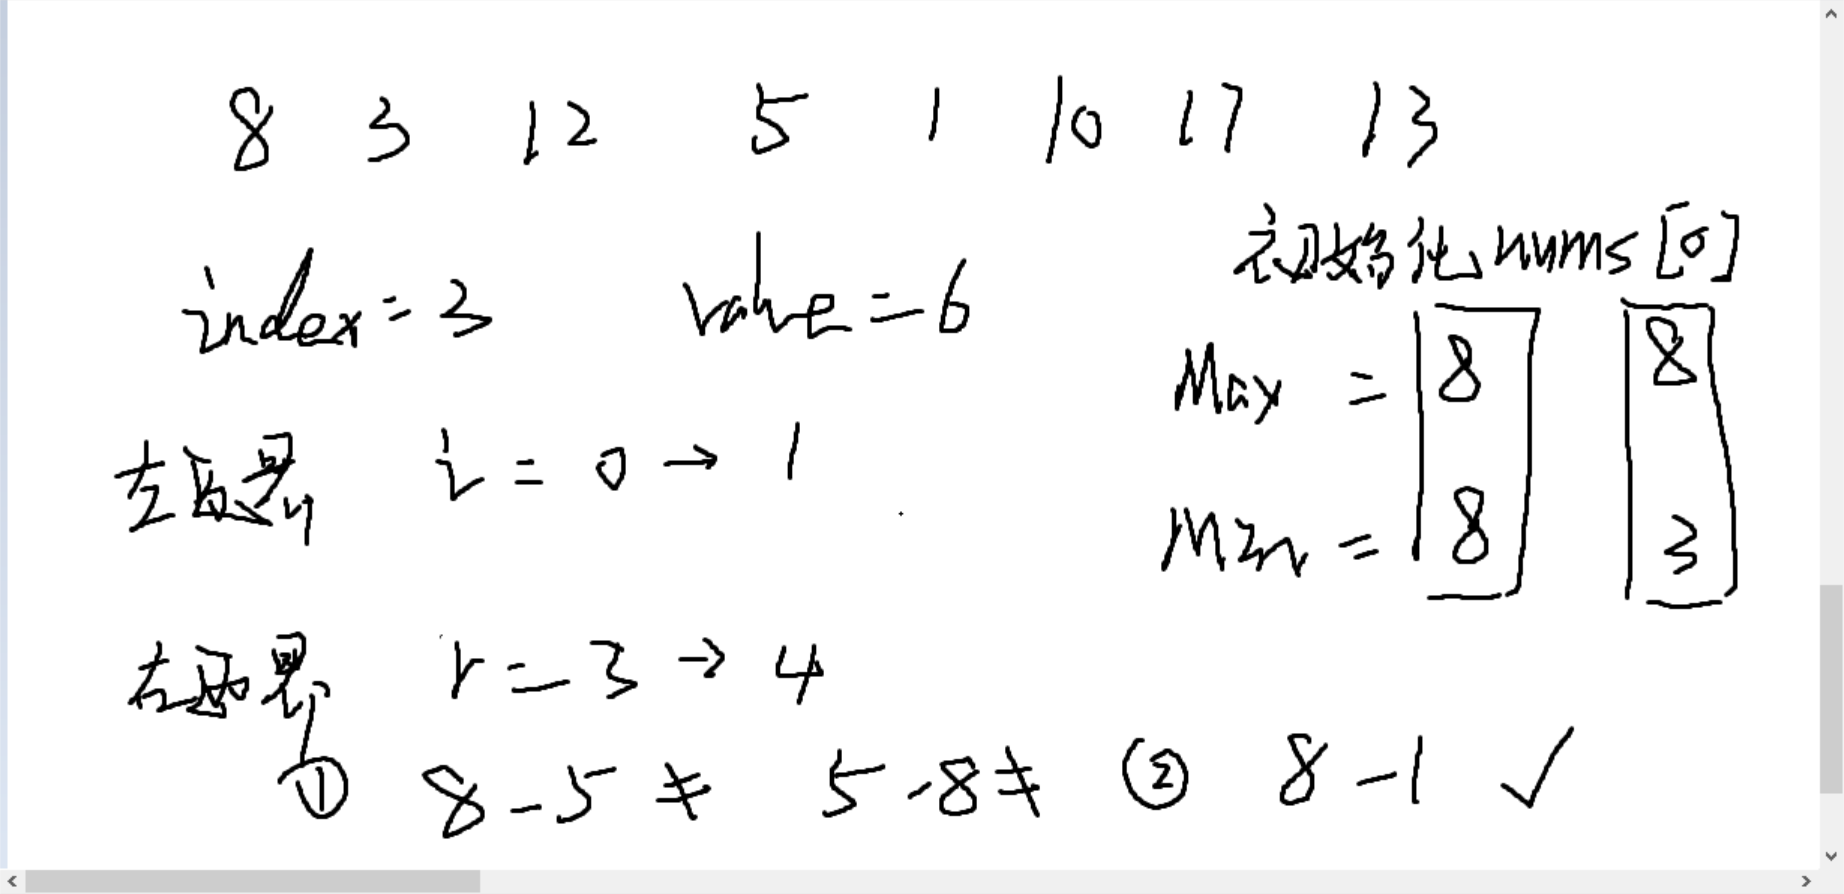 8 3 12 5 1 10 17 13
初始化 nums[0]
index = 3 value = 6
Max = 8 8
左边界 i = 0 → 1
Min = 8 3
右边界 r = 3 → 4
① 8 - 5 ≠ 5 - 8 ≠ ② 8 - 1 ✓